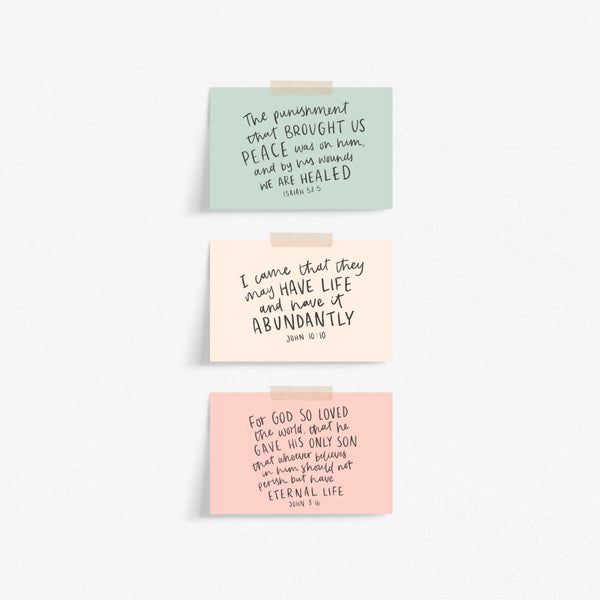 The punishment
that BROUGHT US
PEACE was on him,
and by his wounds
WE ARE HEALED
ISAIAH 53:5
I came that they
may HAVE LIFE
and have it
ABUNDANTLY
JOHN 10:10
For GOD SO LOVED
the world, that he
GAVE HIS ONLY SON
that whoever believes
in him should not
perish but have
ETERNAL LIFE
JOHN 3:16